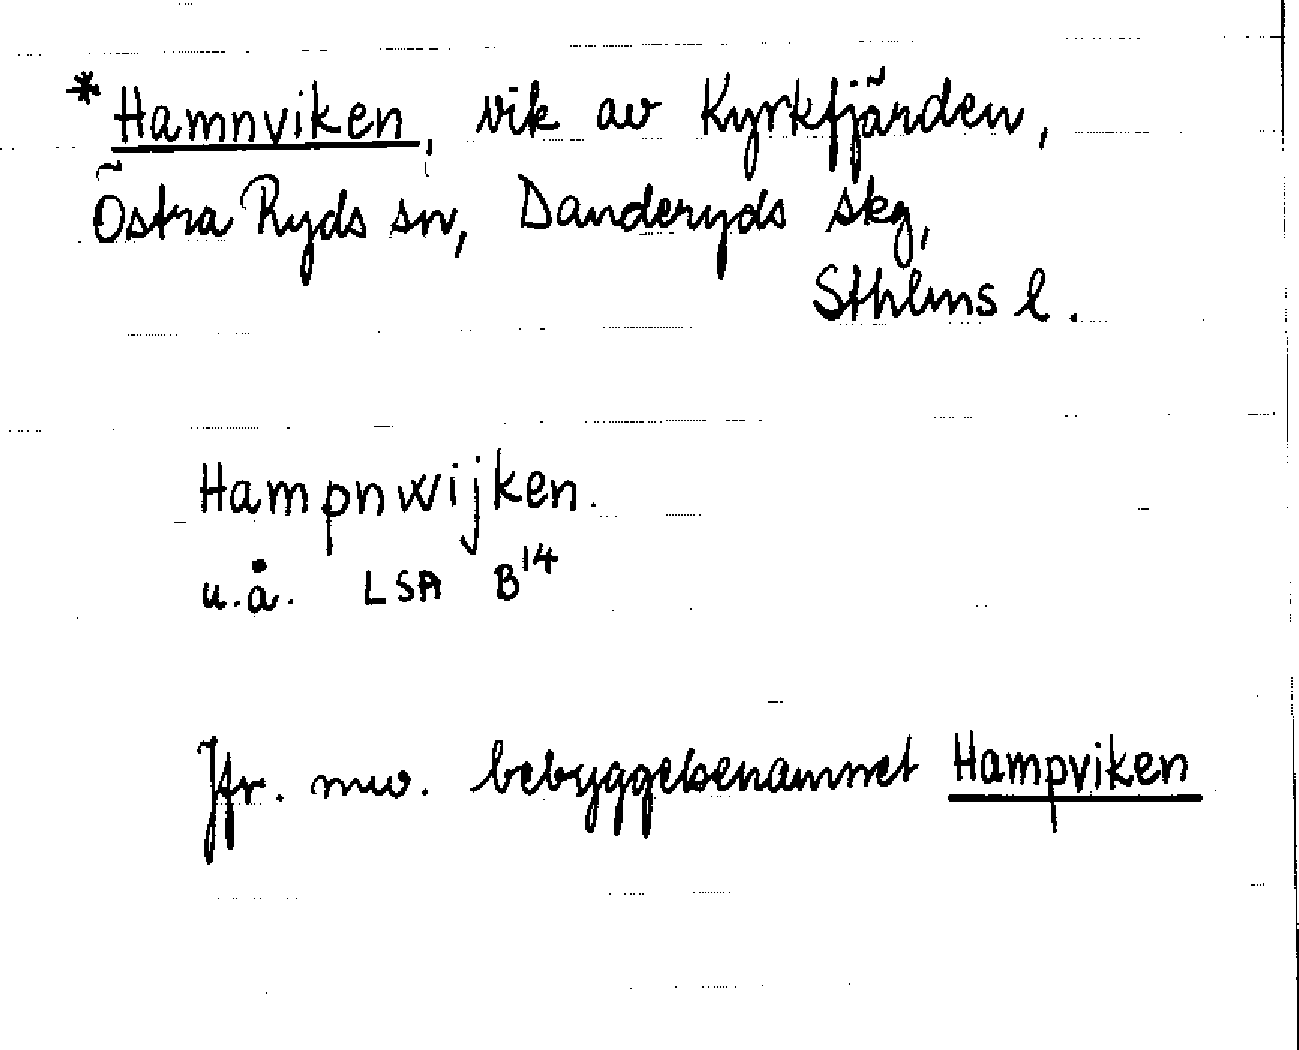 * Hamnviken, vik av Kyrkfjärden,
Östra Ryds sn, Danderyds skg,
Sthlms l.
Hampnwijken.
u.å. LSA B14
Jfr. nuv. bebyggelsenamnet Hampviken